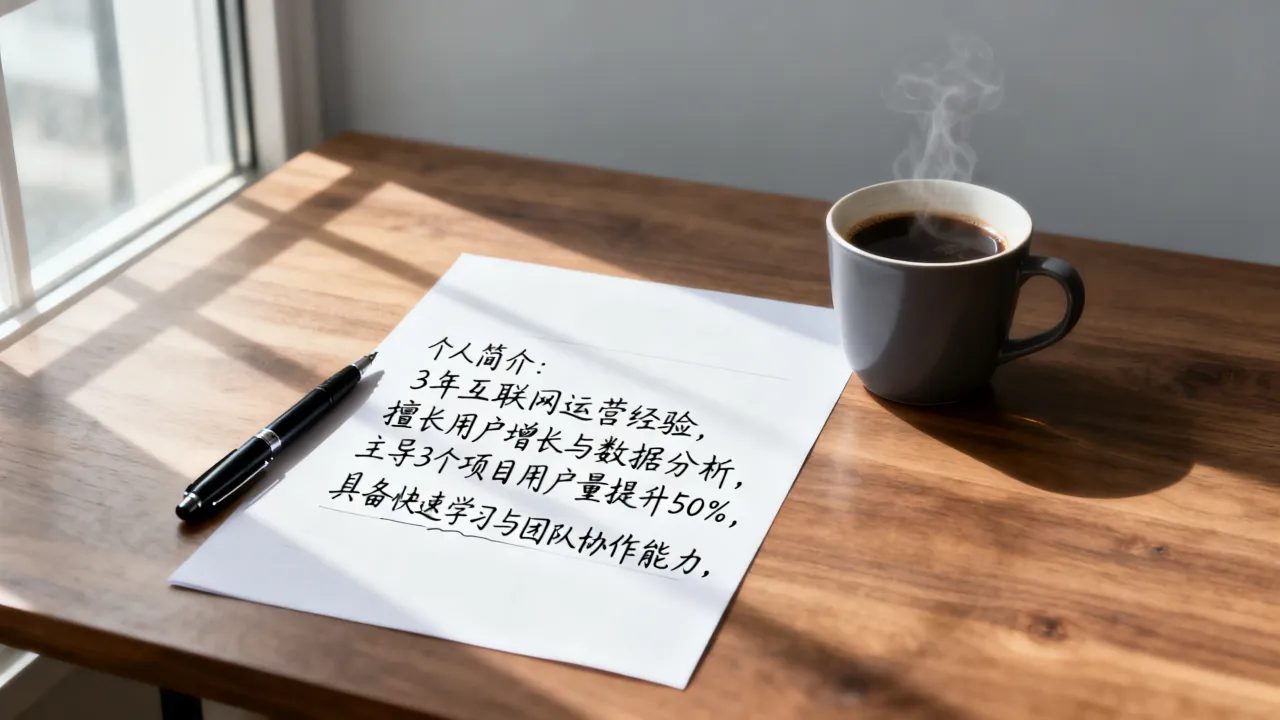 个人简介：
3年互联网运营经验，
擅长用户增长与数据分析，
主导3个项目用户量提升50%，
具备快速学习与团队协作能力，